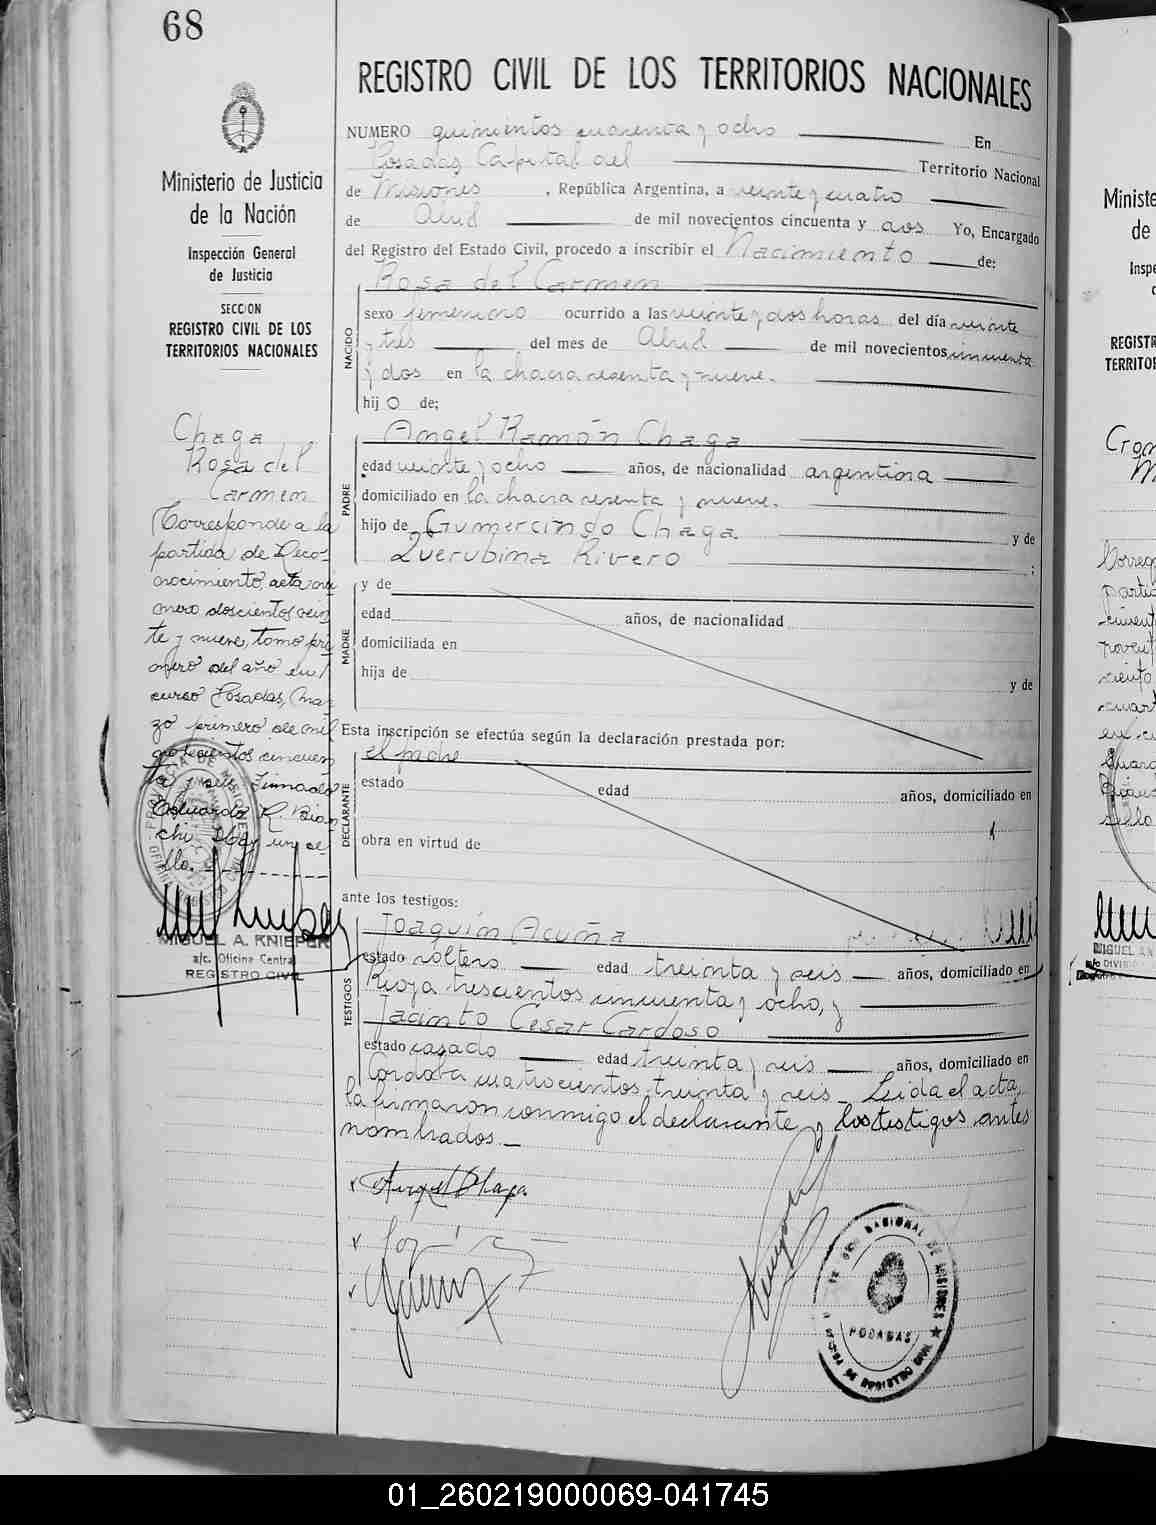 68
REGISTRO CIVIL DE LOS TERRITORIOS NACIONALES
Ministerio de Justicia
de la Nación
Inspección General
de Justicia
SECCION
REGISTRO CIVIL DE LOS
TERRITORIOS NACIONALES
NUMERO quinientos cuarenta y ocho En
Posadas Capital del Territorio Nacional
de Misiones, República Argentina, a veinte y cuatro
de Abril de mil novecientos cincuenta y dos Yo, Encargado
del Registro del Estado Civil, procedo a inscribir el Nacimiento de:
NACIDO
Rosa del Carmen
sexo femenino ocurrido a las veinte y dos horas del día veinte
y tres del mes de Abril de mil novecientos cincuenta
y dos en la chacra sesenta y nueve.
hijo de;
PADRE
Angel Ramón Chaga
edad veinte y ocho años, de nacionalidad argentina
domiciliado en la chacra sesenta y nueve.
hijo de Gumercindo Chaga y de
Querubina Rivero ;
MADRE
y de
edad años, de nacionalidad
domiciliada en
hija de y de
Esta inscripción se efectúa según la declaración prestada por:
DECLARANTE
el padre
estado edad años, domiciliado en
obra en virtud de
ante los testigos:
TESTIGOS
Joaquín Acuña
estado soltero edad treinta y seis años, domiciliado en
Rioja trescientos cincuenta y ocho, y
Jacinto Cesar Cardoso
estado casado edad treinta y seis años, domiciliado en
Cordoba cuatrocientos treinta y seis _ Leida el acta,
la firmaron conmigo el declarante y los testigos antes
nombrados._
Angel Chaga
Chaga
Rosa del
Carmen
Corresponde a la
partida de Reco-
nocimiento, acta nú
mero doscientos vein
te y nueve, tomo pri
mero del año en
curso Posadas, Mar
zo primero de mil
novecientos cincuen
ta y seis Firmado
Eduardo R. Bian
chi. Hay un se-
llo.
MIGUEL A. KNIEPER
a/c. Oficina Central
REGISTRO CIVIL
NACIONAL DE MISIONES
POSADAS
OFICINA DE REGISTRO CIVIL
Ministe
de
Inspe
REGISTR
TERRITOR
MIGUEL AN
a/c DIVISI
01_260219000069-041745